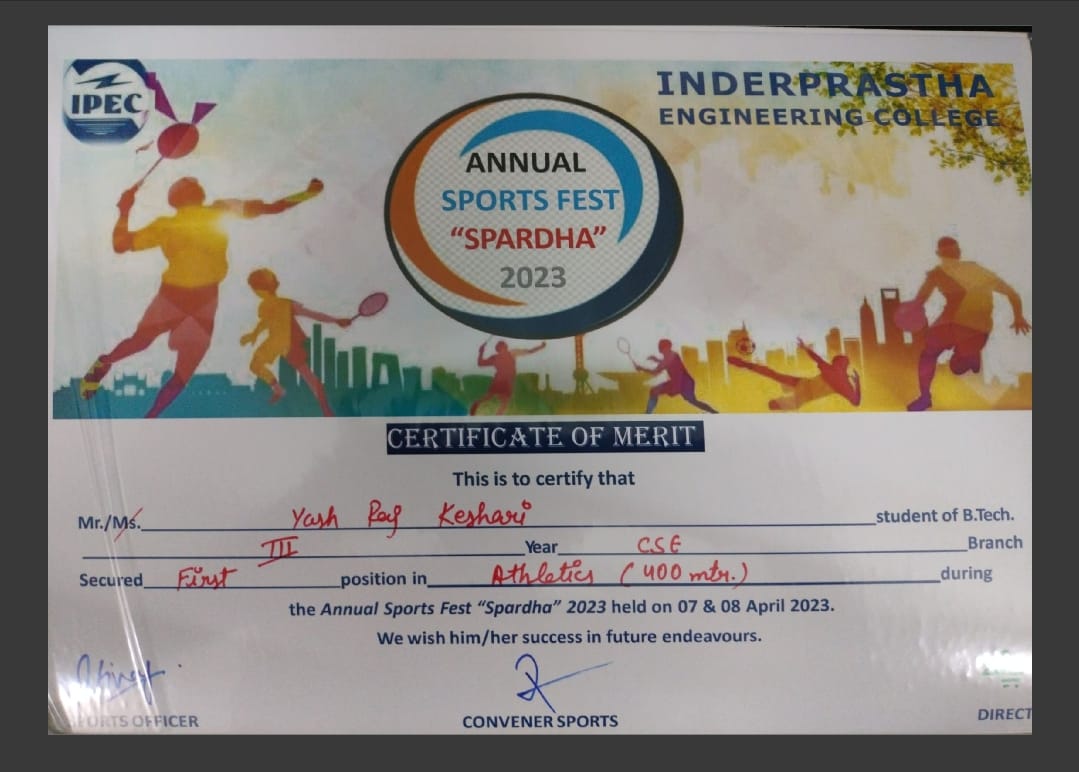 IPEC
INDERPRASTHA
ENGINEERING COLLEGE
ANNUAL
SPORTS FEST
“SPARDHA”
2023
CERTIFICATE OF MERIT
This is to certify that
Mr./Ms. Yash Raj Keshari student of B.Tech.
III Year CSE Branch
Secured First position in Athletics (400 mtr.) during
the Annual Sports Fest “Spardha” 2023 held on 07 & 08 April 2023.
We wish him/her success in future endeavours.
SPORTS OFFICER
CONVENER SPORTS
DIRECT